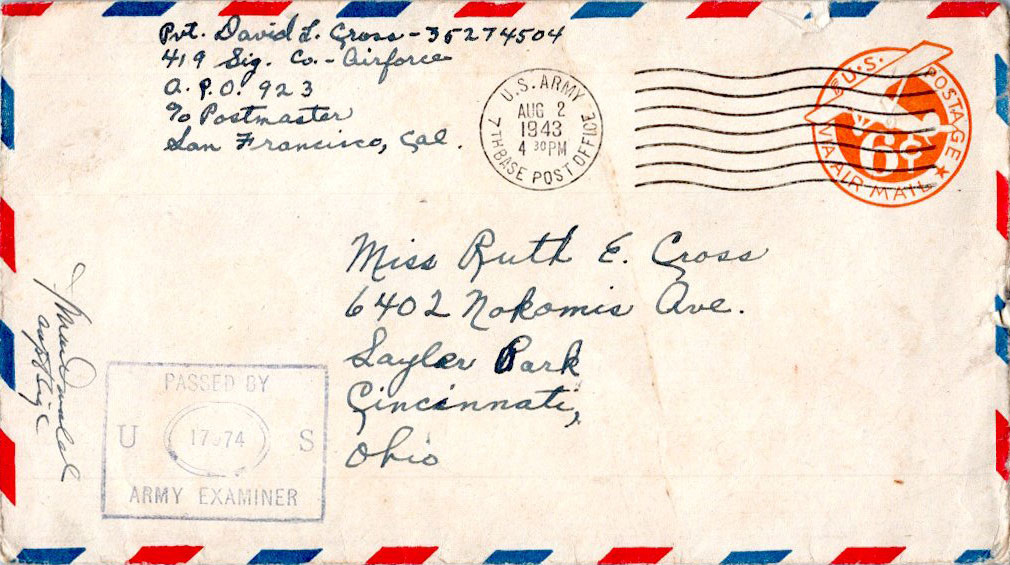 Pvt. David L. Cross - 35274504
419 Sig. Co. - Airforce
A. P. O. 923
c/o Postmaster
San Francisco, Cal.
U.S. ARMY
AUG 2
1943
4 30 PM
7TH BASE POST OFFICE
U.S. POSTAGE
6¢
VIA AIR MAIL
Miss Ruth E. Cross
6402 Nokomis Ave.
Sayler Park
Cincinnati,
Ohio
PASSED BY
U S
ARMY EXAMINER